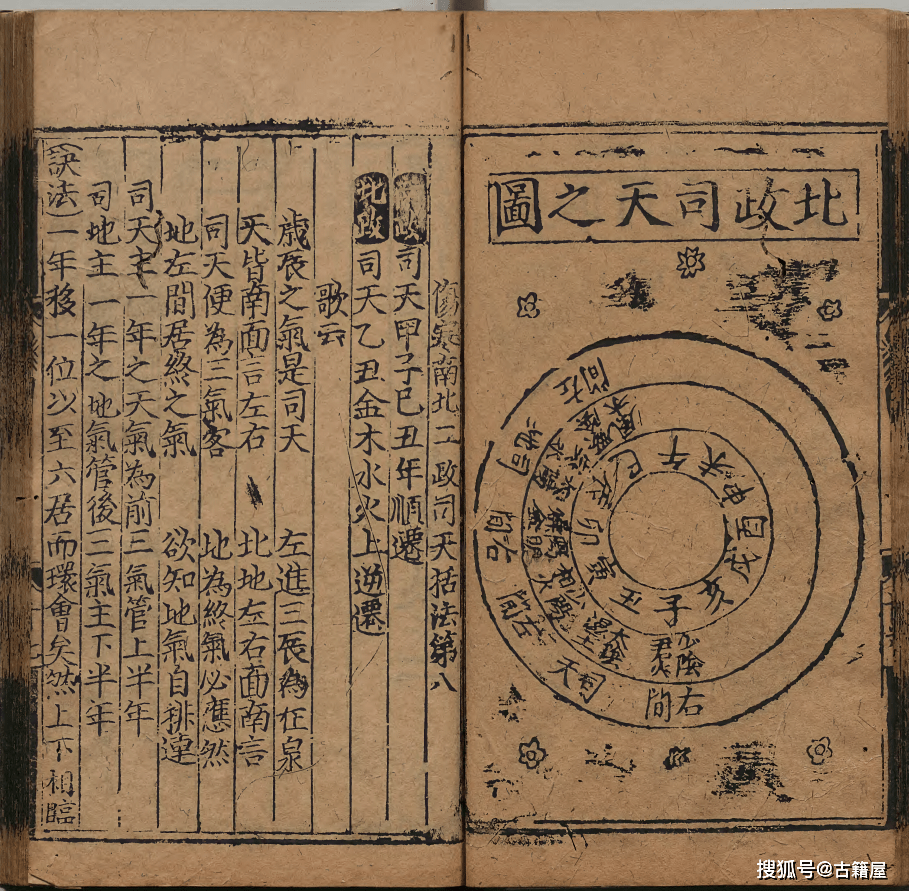 北政司天之圖
左間
司地
右間
左間
司天
右間
厥陰風木
少陰君火
子
丑
寅
卯
辰
巳
午
未
申
酉
戌
亥
傷寒南北二政司天括法第八
南政司天甲子己丑年順遷
北政司天乙丑金木水火上逆遷
歌云
歲辰之氣是司天 左進三辰為在泉
天皆南面言左右 北地左右面南言
司天便為三氣客 地為終氣必應然
地左間居終之氣 欲知地氣自排連
司天主一年之天氣為前三氣管上半年
司地主一年之地氣管後三氣主下半年
訣法一年移一位以至六居而環會矣然上下相臨
搜狐号@古籍屋